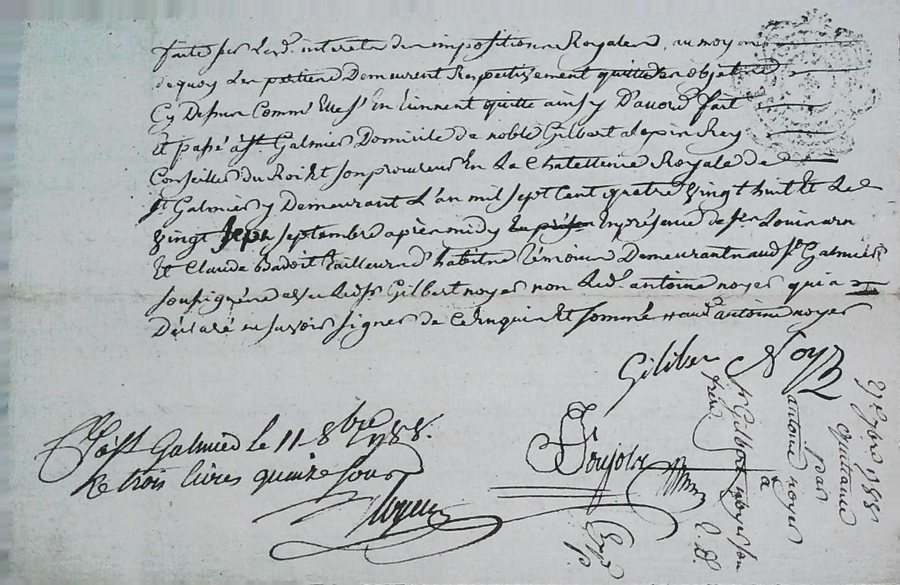 faite par led. interets des impositions Royales, au moyen
de quoy les parties Demeurent Respectivement quittes des objets
Cy Dessus Comme Elles S'En tiennent quitte ainsy D'accord fait
Et passé à St. Galmier Domicile de noble Gilbert alepin Rey
Conseiller du Roi Et son procureur En La Chatellenie Royale de
St. Galmier y Demeurant L'an mil sept Cent quatre vingt huit Et Le
vingt sept septembre après midy En présence de
Et Claude Badoit tailleur d'habits témoins Demeurant aud. St. Galmier
soussignés avec led. Sr. Gilbert noyer non Led. antoine noyer qui a
Déclaré ne savoir signer de ce Enquis Et sommé antoine noyer
Giliber Noyer
Coll. à St. Galmier le 11 8bre 1788.
Re trois livres quinze sous
Poujolz
Exp.
Sr. Gilbert noyer son
frere
à
antoine noyer
par
quittance
27 7bre 1788